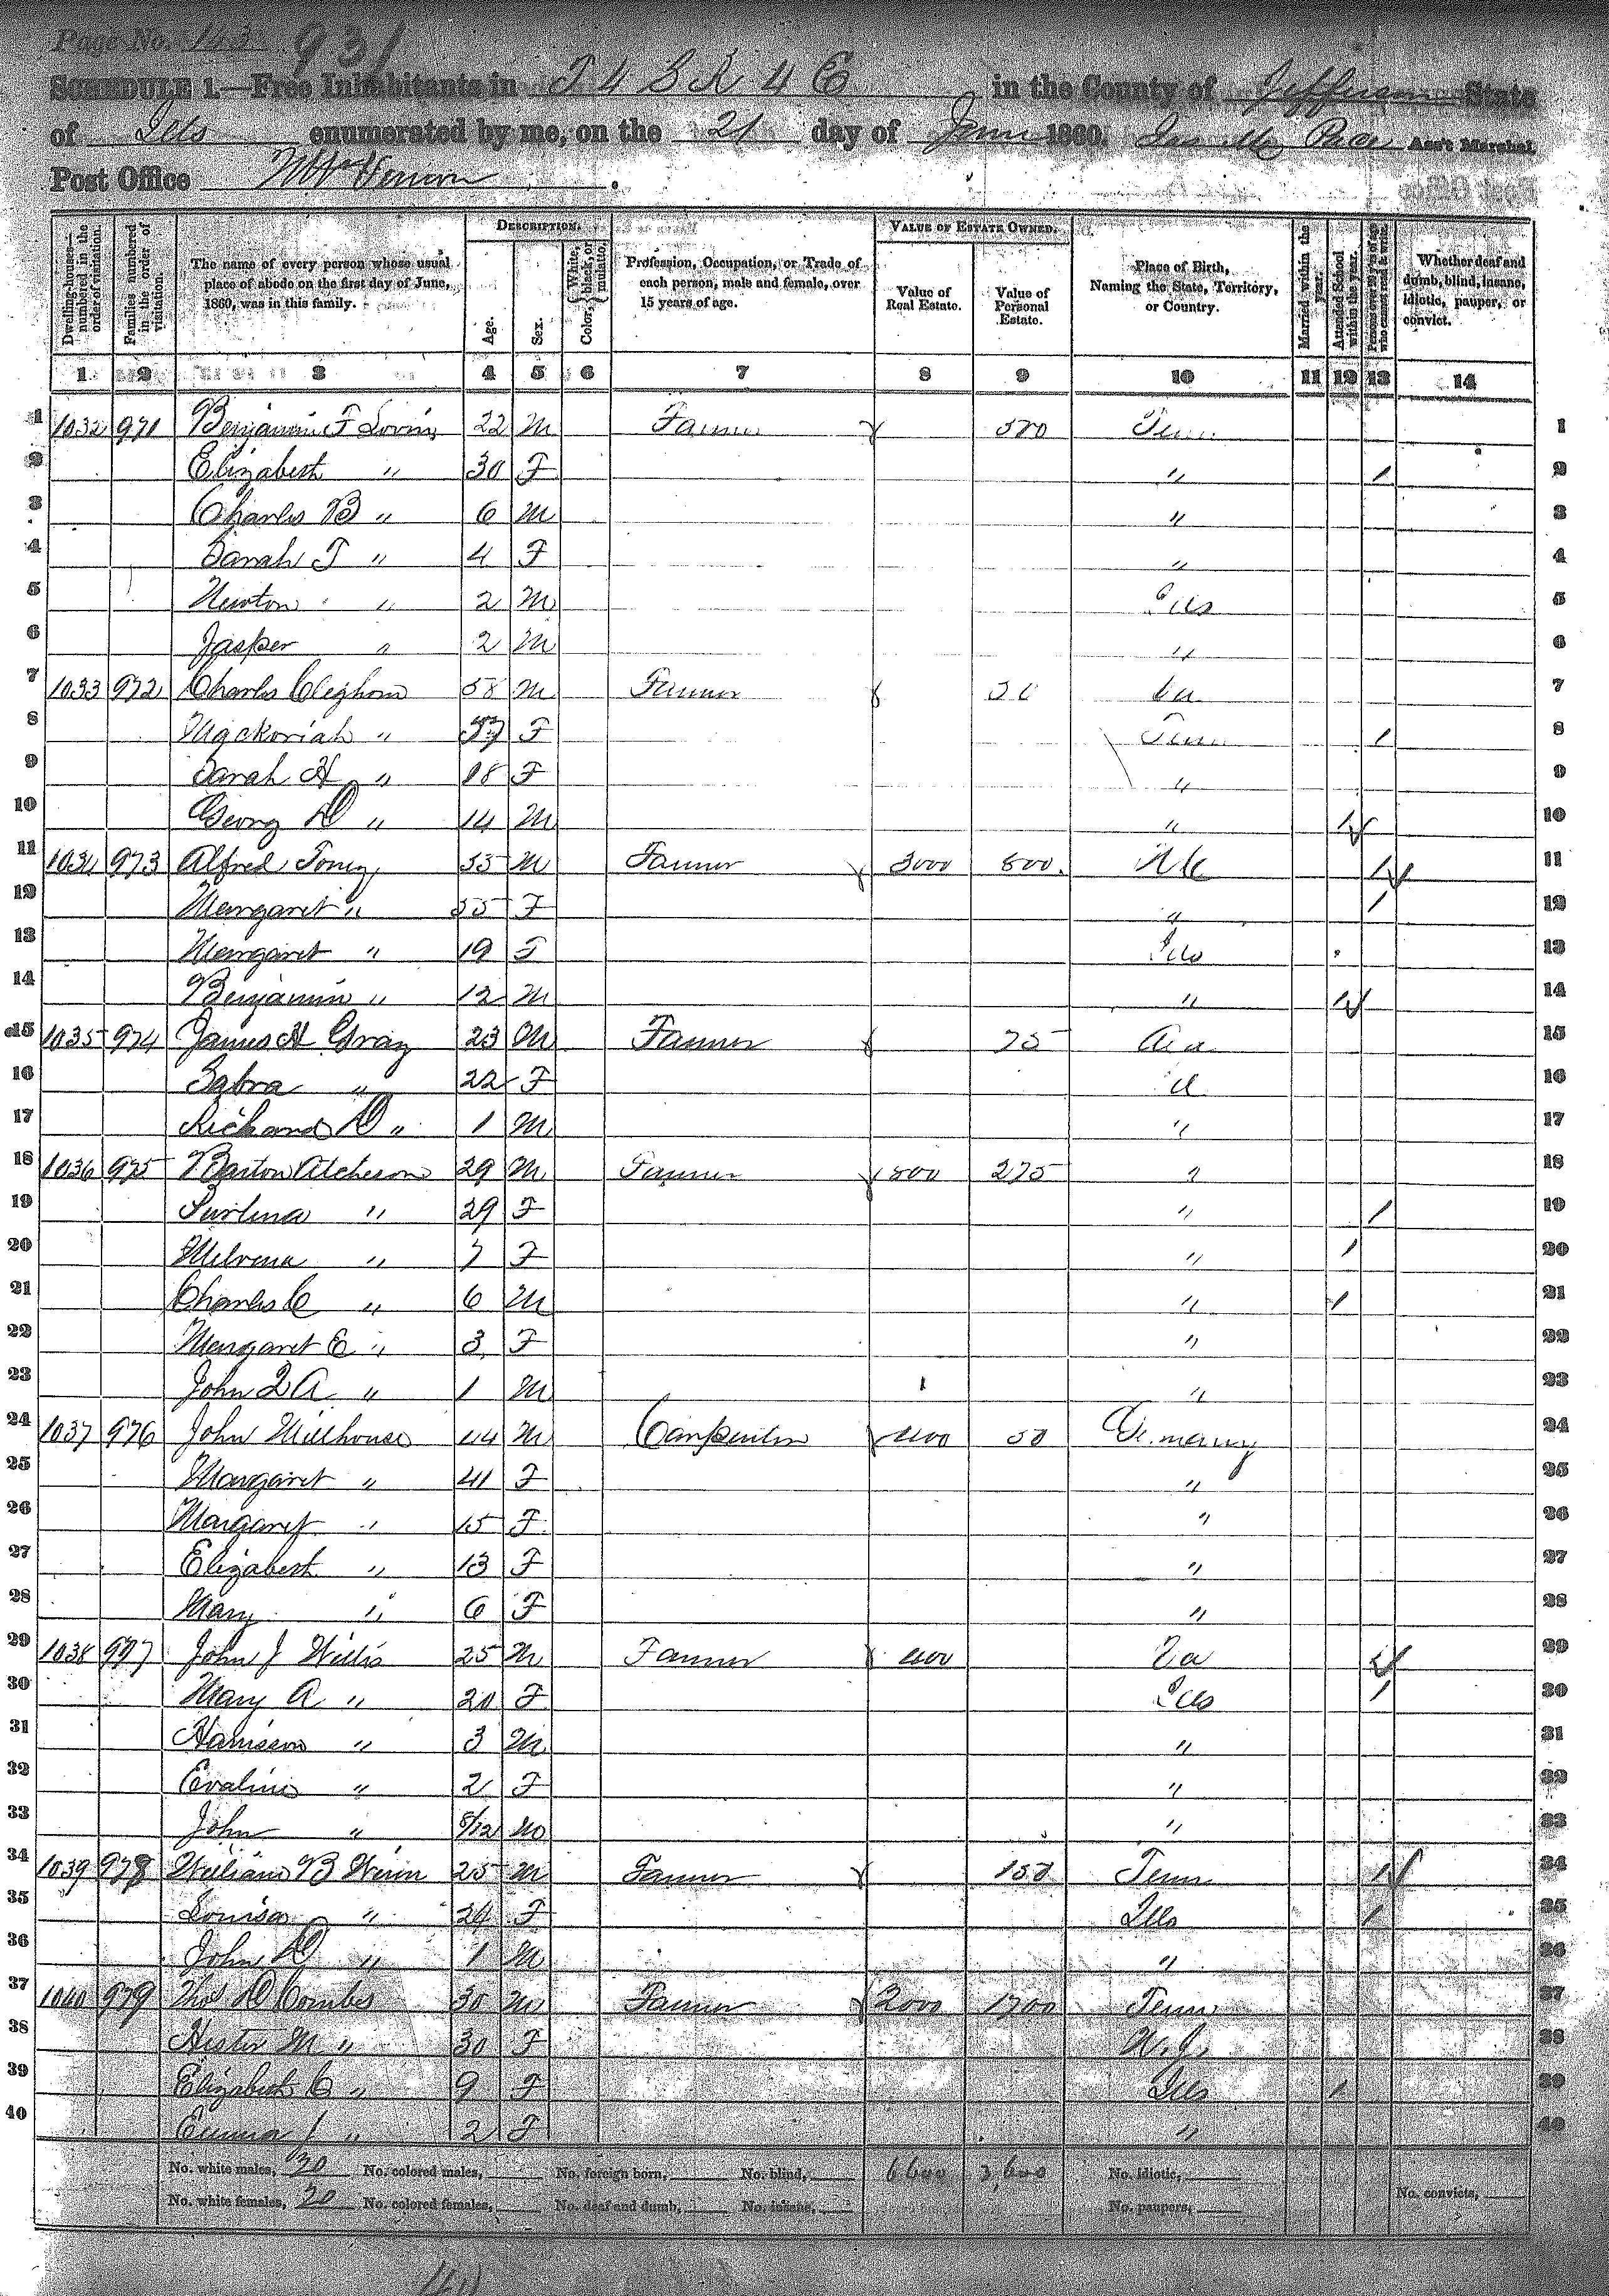 Page No. 143 931
SCHEDULE 1.—Free Inhabitants in T 4 S R 4 E in the County of Jefferson State
of Ills enumerated by me, on the 21 day of June 1860. Pace Ass't Marshal.
Post Office Mt Vernon.
Dwelling-house—numbered in the order of visitation.
Families numbered in the order of visitation.
The name of every person whose usual place of abode on the first day of June, 1860, was in this family.
DESCRIPTION.
Age.
Sex.
Color, White, black, or mulatto.
Profession, Occupation, or Trade of each person, male and female, over 15 years of age.
VALUE OF ESTATE OWNED.
Value of Real Estate.
Value of Personal Estate.
Place of Birth, Naming the State, Territory, or Country.
Married within the year.
Attended School within the year.
Persons over 20 y'rs of age who cannot read & write.
Whether deaf and dumb, blind, insane, idiotic, pauper, or convict.
1 2 3 4 5 6 7 8 9 10 11 12 13 14
1 1032 971 Benjamin F 22 M Farmer Tenn 1
2 Elizabeth " 30 F " / 2
3 Charles B " 6 M " 3
4 Sarah T " 4 F " 4
5 Newton " 2 M Ills 5
6 Jasper " 2 M " 6
7 1033 972 Charles Cleghorn 58 M Farmer 7
8 " F Tenn / 8
9 Sarah H " 18 F " 9
10 Georg D " 14 M " / 10
11 1034 973 Alfred 55 M Farmer 3000 800 N C / 11
12 Margaret " 55 F " / 12
13 Margaret " 19 F Ills 13
14 Benjamin " 12 M " / 14
15 1035 974 James H Gray 23 M Farmer 75 15
16 Sabra " 22 F 16
17 Richard D " 1 M " 17
18 1036 975 Barton Atcheson 29 M Farmer 800 275 " 18
19 " 29 F " / 19
20 " 7 F " / 20
21 Charles C " 6 M " / 21
22 Margaret E " 3 F " 22
23 John Q A " 1 M " 23
24 1037 976 John Millhouse 44 M Carpenter 400 50 Germany 24
25 Margaret " 41 F " 25
26 Margaret " 15 F " 26
27 Elizabeth " 13 F " 27
28 Mary " 6 F " 28
29 1038 977 John J Willis 25 M Farmer 400 Va / 29
30 Mary A " 20 F Ills / 30
31 Harrison " 3 M " 31
32 Evaline " 2 F " 32
33 John " 8/12 M " 33
34 1039 978 William B 25 M Farmer 150 Tenn / 34
35 Louisa " 24 F Ills / 35
36 John D " 1 M " 36
37 1040 979 Thos D Combes 30 M Farmer 2000 1700 Tenn 37
38 Hester M " 30 F N.J. 38
39 Elizabeth C " 9 F Ills / 39
40 Emma J " 2 F " 40
No. white males, 20 No. colored males, No. foreign born, No. blind, 6600 3,600 No. idiotic,
No. white females, 20 No. colored females, No. deaf and dumb, No. insane, No. paupers, No. convicts,